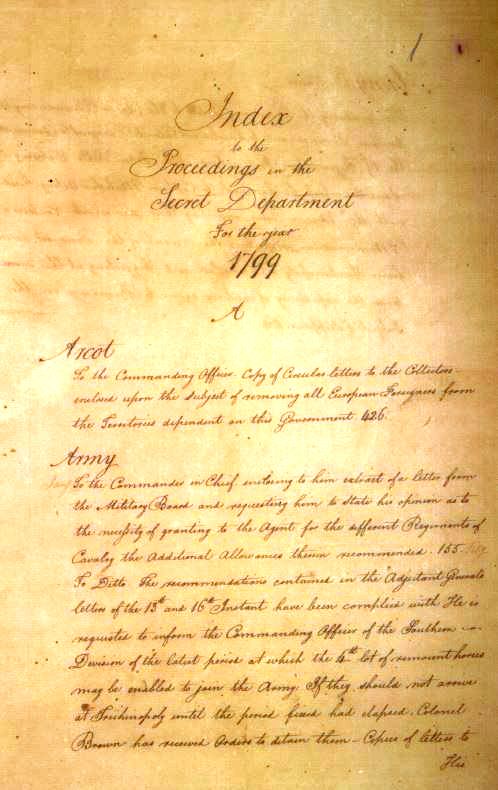 1
Index
to the
Proceedings in the
Secret Department
For the year
1799
A
Arcot
To the Commanding Officer. Copy of Circular letters to the Collectors
enclosed upon the subject of removing all European Foreigners from
the Territories dependent on this Government. 426.
Army
To the Commander in Chief enclosing to him extract of a letter from
the Military Board and requesting him to state his opinion as to
the necessity of granting to the Agent for the different Regiments of
Cavalry the Additional Allowances therein recommended. 155
To Ditto. The recommendations contained in the Adjutant Generals
letters of the 13th and 16th Instant have been complied with He is
requested to inform the Commanding Officer of the Southern
Division of the latest period at which the 4th lot of remount horses
may be enabled to join the Army If they should not arrive
at Trichinopoly until the period fixed had elapsed. Colonel
Brown has received Orders to detain them - Copies of letters to
His